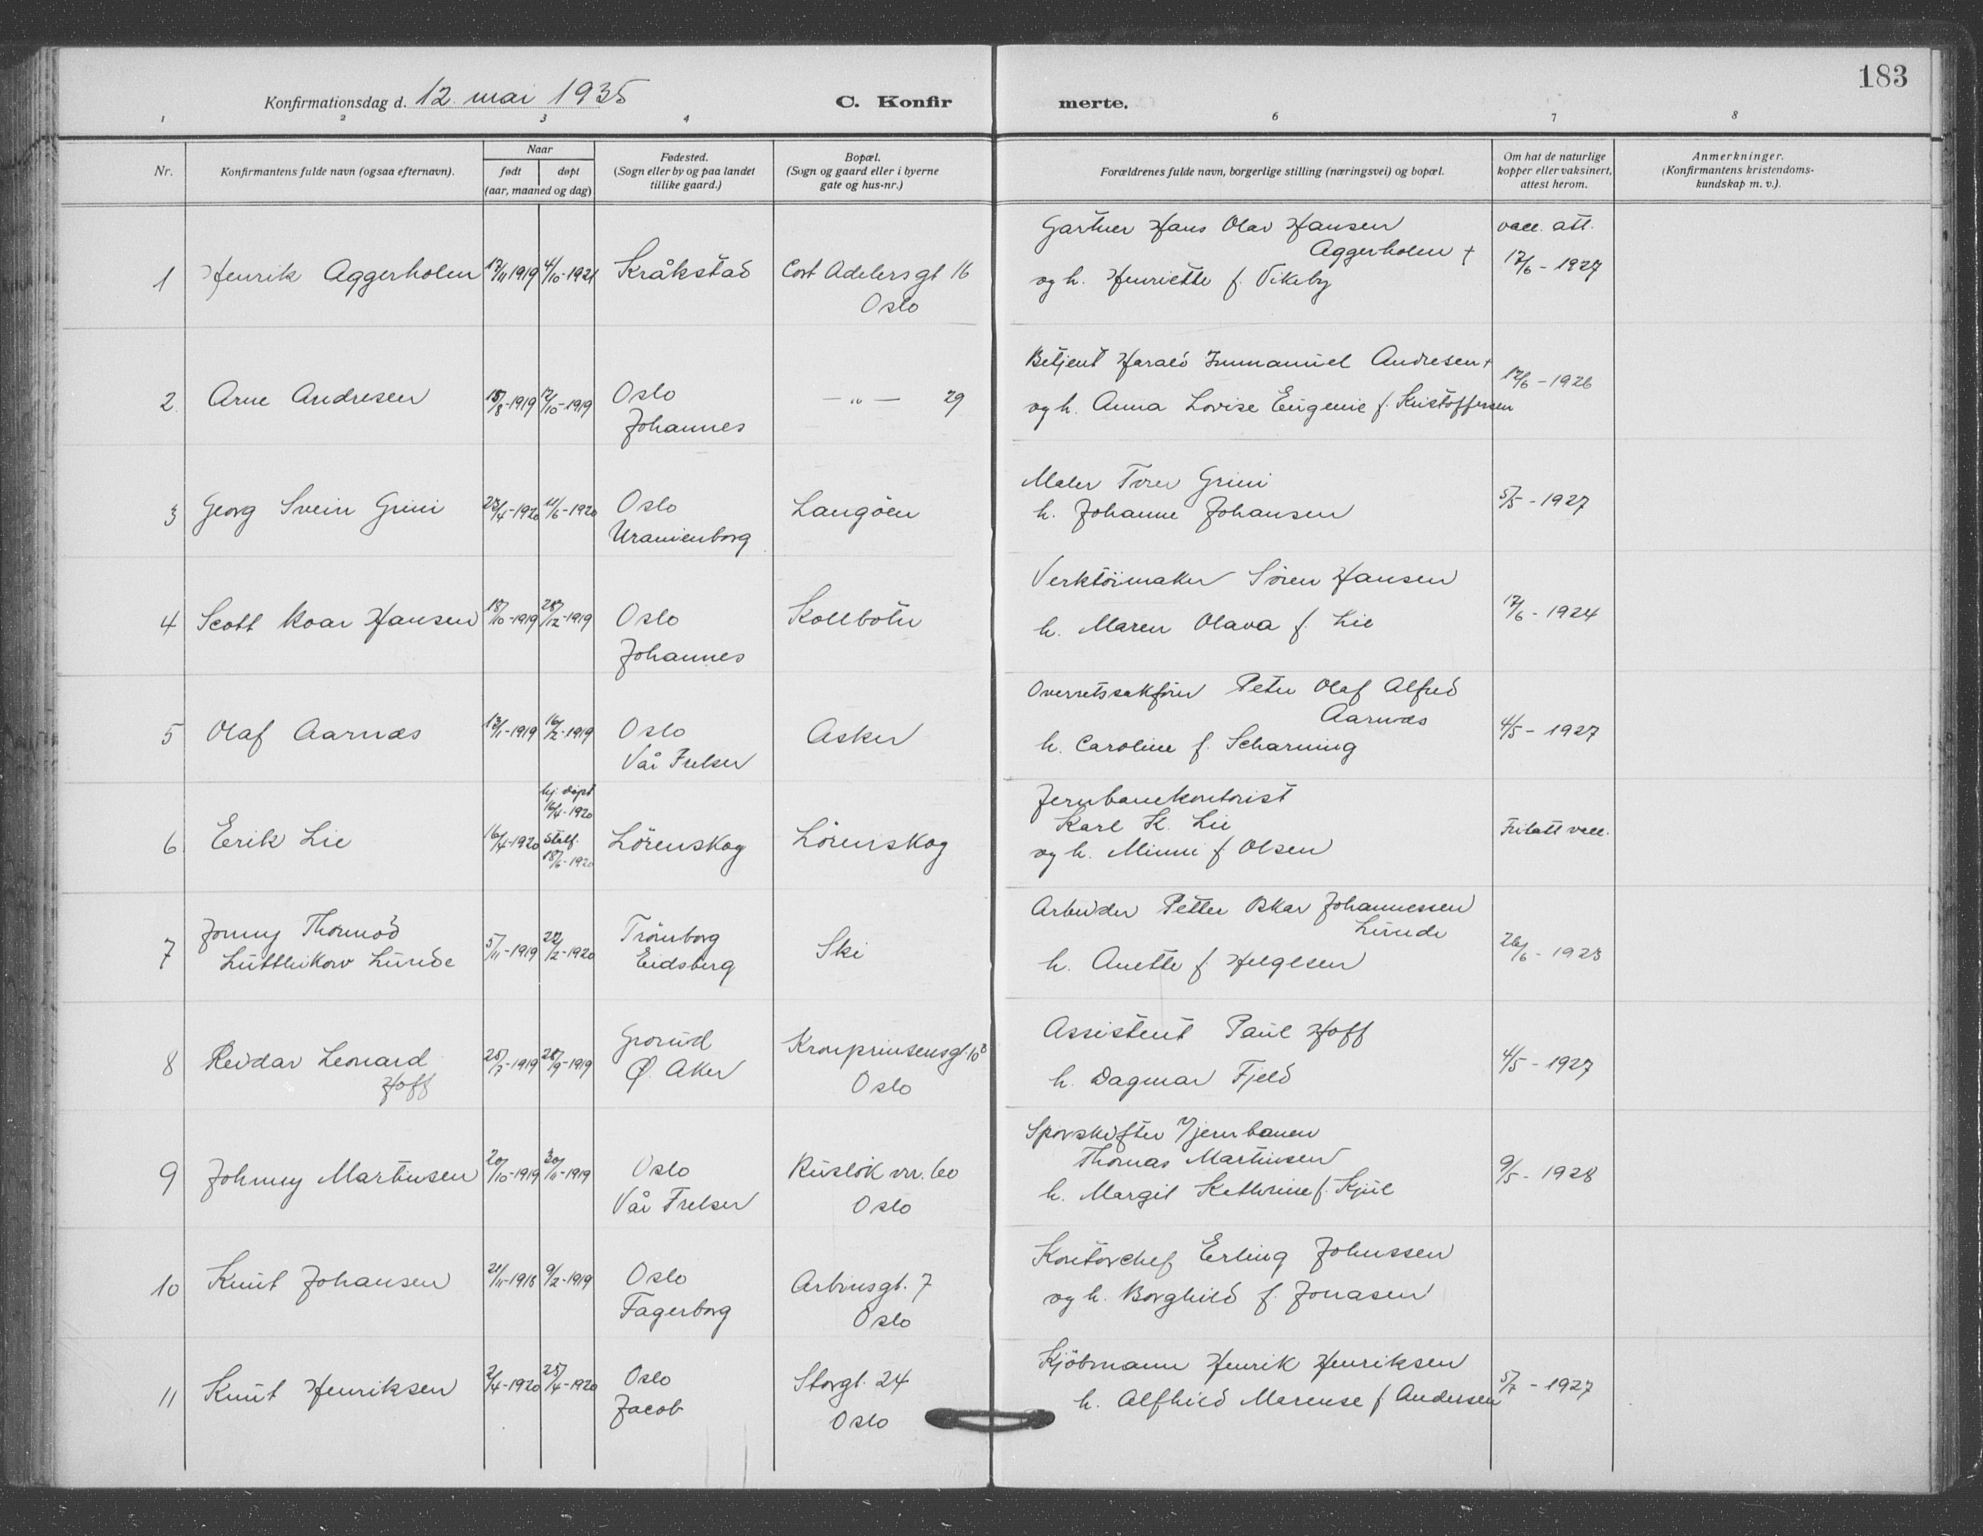 183
Konfirmationsdag d. 12. mai 1935 C. Konfirmerte.
1 2 3 4 6 7 8
Nr. Konfirmantens fulde navn (ogsaa efternavn). Naar født døpt (aar, maaned og dag) Fødested. (Sogn eller by og paa landet tillike gaard.) Bopæl. (Sogn og gaard eller i byerne gate og hus-nr.) Forældrenes fulde navn, borgerlige stilling (næringsvei) og bopæl. Om hat de naturlige kopper eller vaksinert, attest herom. Anmerkninger. (Konfirmantens kristendomskundskap m. v.).
Gartner Hans Olav Hansen vacc. att.
Aggerholm +
1 Henrik Aggerholm 17/11 1919 4/10-1921 Kråkstad Cort Adelersgt 16 og h. Henriette f. Vikeby 17/6 - 1927
Oslo
Betjent Harald Immanuel Andresen +
2 Arne Andresen 15/8-1919 12/10-1919 Oslo — „ — 29 og h. Anna Lovise Eugenie f. Kristoffersen 12/6 - 1926
Johannes
Maler Tore Grini
3 Georg Svein Grini 23/4-1920 11/6-1920 Oslo Langöen h. Johanne Johansen 5/5 - 1927
Uranienborg
Verktöimaker Sören Hansen
4 Scott Roar Hansen 18/10-1919 28/12-1919 Oslo Kolbotn h. Maren Olava f. Lie 17/6 - 1924
Johannes
Overretssakförer Peter Olaf Alfred
Aarnæs
5 Olaf Aarnæs 13/1-1919 16/2-1919 Oslo Asker h. Caroline f. Scharning 4/5 - 1927
Vår Frelser
hj. döpt
16/4-1920
Jernbanekontorist
Karl K. Lie
6 Erik Lie 16/4-1920 stadf. Lörenskog Lörenskog og h. Minni f Olsen Fritatt vacc.
18/6-1920
Arbeider Petter Oskar Johannessen
Lunde
7 Jonny Thormod 5/11-1919 22/2-1920 Trömborg Ski h. Anette f. Helgesen 26/6 - 1923
Lunde Eidsberg
Assistent Paul Hoff
8 Reidar Leonard 25/7-1919 28/9-1919 Grorud Kronprinsensgt 10 h. Dagmar Fjeld 4/5 - 1927
Hoff Ø. Aker Oslo
Sporskifter v/jernbanen
Thomas Martinsen
9 Johnny Martinsen 20/10-1919 30/11-1919 Oslo Rusløk vn. 60 h. Margit Kathrine f. Kjül 9/5 - 1928
Vår Frelser Oslo
Kontorchef Erling Johnssen
10 Knut Johansen 21/11-1918 9/2-1919 Oslo Arbinsgt. 7 og h. Borghild f. Jonasen
Fagerborg Oslo
Kjöbmann Henrik Henriksen
11 Knut Henriksen 2/4-1920 25/4-1920 Oslo Storgt. 24 h. Alfhild Marense f Andersen 5/7 - 1927
Jacob Oslo